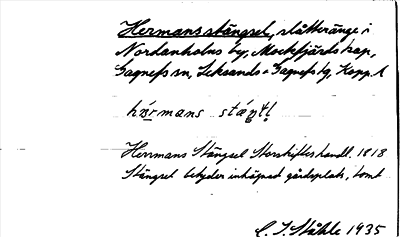 Hermans stängsel, slåtteränge i
Nordanholns by, Mockfjärds kap,
Gagnefs sn, Leksands o Gagnefs tg, Kopp. l
härmans stáŋṭḷ
Hermans Stängsel Storskifteshandl. 1818
Stängsel betyder inhägnad gårdsplats, tomt
C. I. Ståhle 1935